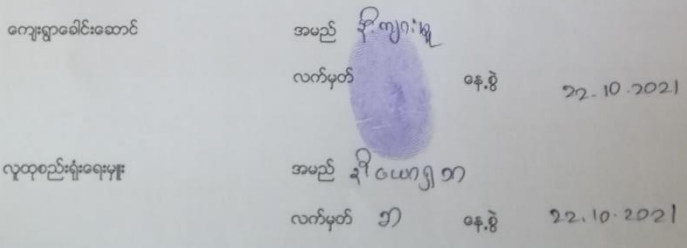 ကျေးရွာခေါင်းဆောင် အမည် နိုကျားမူ
လက်မှတ် နေ့စွဲ 22-10-2021
လူထုစည်းရုံးရေးမှူး အမည် နော်ယောရှုဘာ
လက်မှတ် ဘာ နေ့စွဲ 22.10.2021